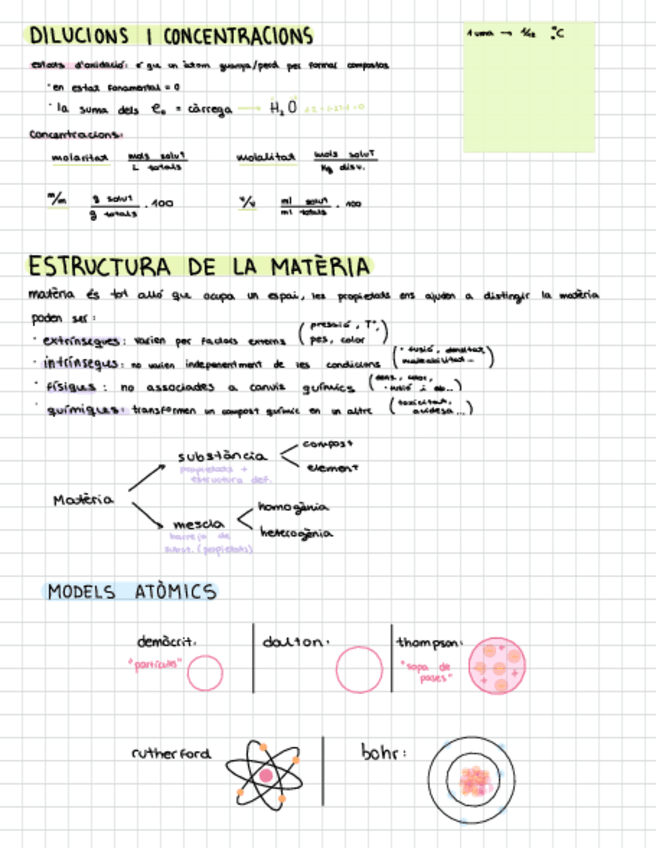 DILUCIONS I CONCENTRACIONS
1 uma → 1/12 C
estats d'oxidació: e⁻ que un àtom guanya/perd per formar compostos
· en estat fonamental = 0
· la suma dels e₀ = càrrega → H₂O
concentracions:
molaritat mols solut / L totals
molalitat mols solut / Kg disv.
m/m g solut / g totals · 100
v/v ml solut / ml totals · 100
ESTRUCTURA DE LA MATÈRIA
matèria és tot allò que ocupa un espai, les propietats ens ajuden a distingir la matèria
poden ser:
· extrínseques: varien per factors externs (pressió, Tª, pes, color)
· intrínsegues: no varien independentment de les condicions (· fusió, densitat,
· físiques: no associades a canvis químics (dens., color, · fusió i eb...)
· químiques: transformen un compost químic en un altre (toxicitat, acidesa...)
Matèria
substància
propietats +
estructura def.
compost
element
mescla
barreja de
subst. (propietats)
homogènia
heterogènia
MODELS ATÒMICS
demòcrit.
"partícules"
dalton:
thompson:
"sopa de
panses"
rutherford
bohr: